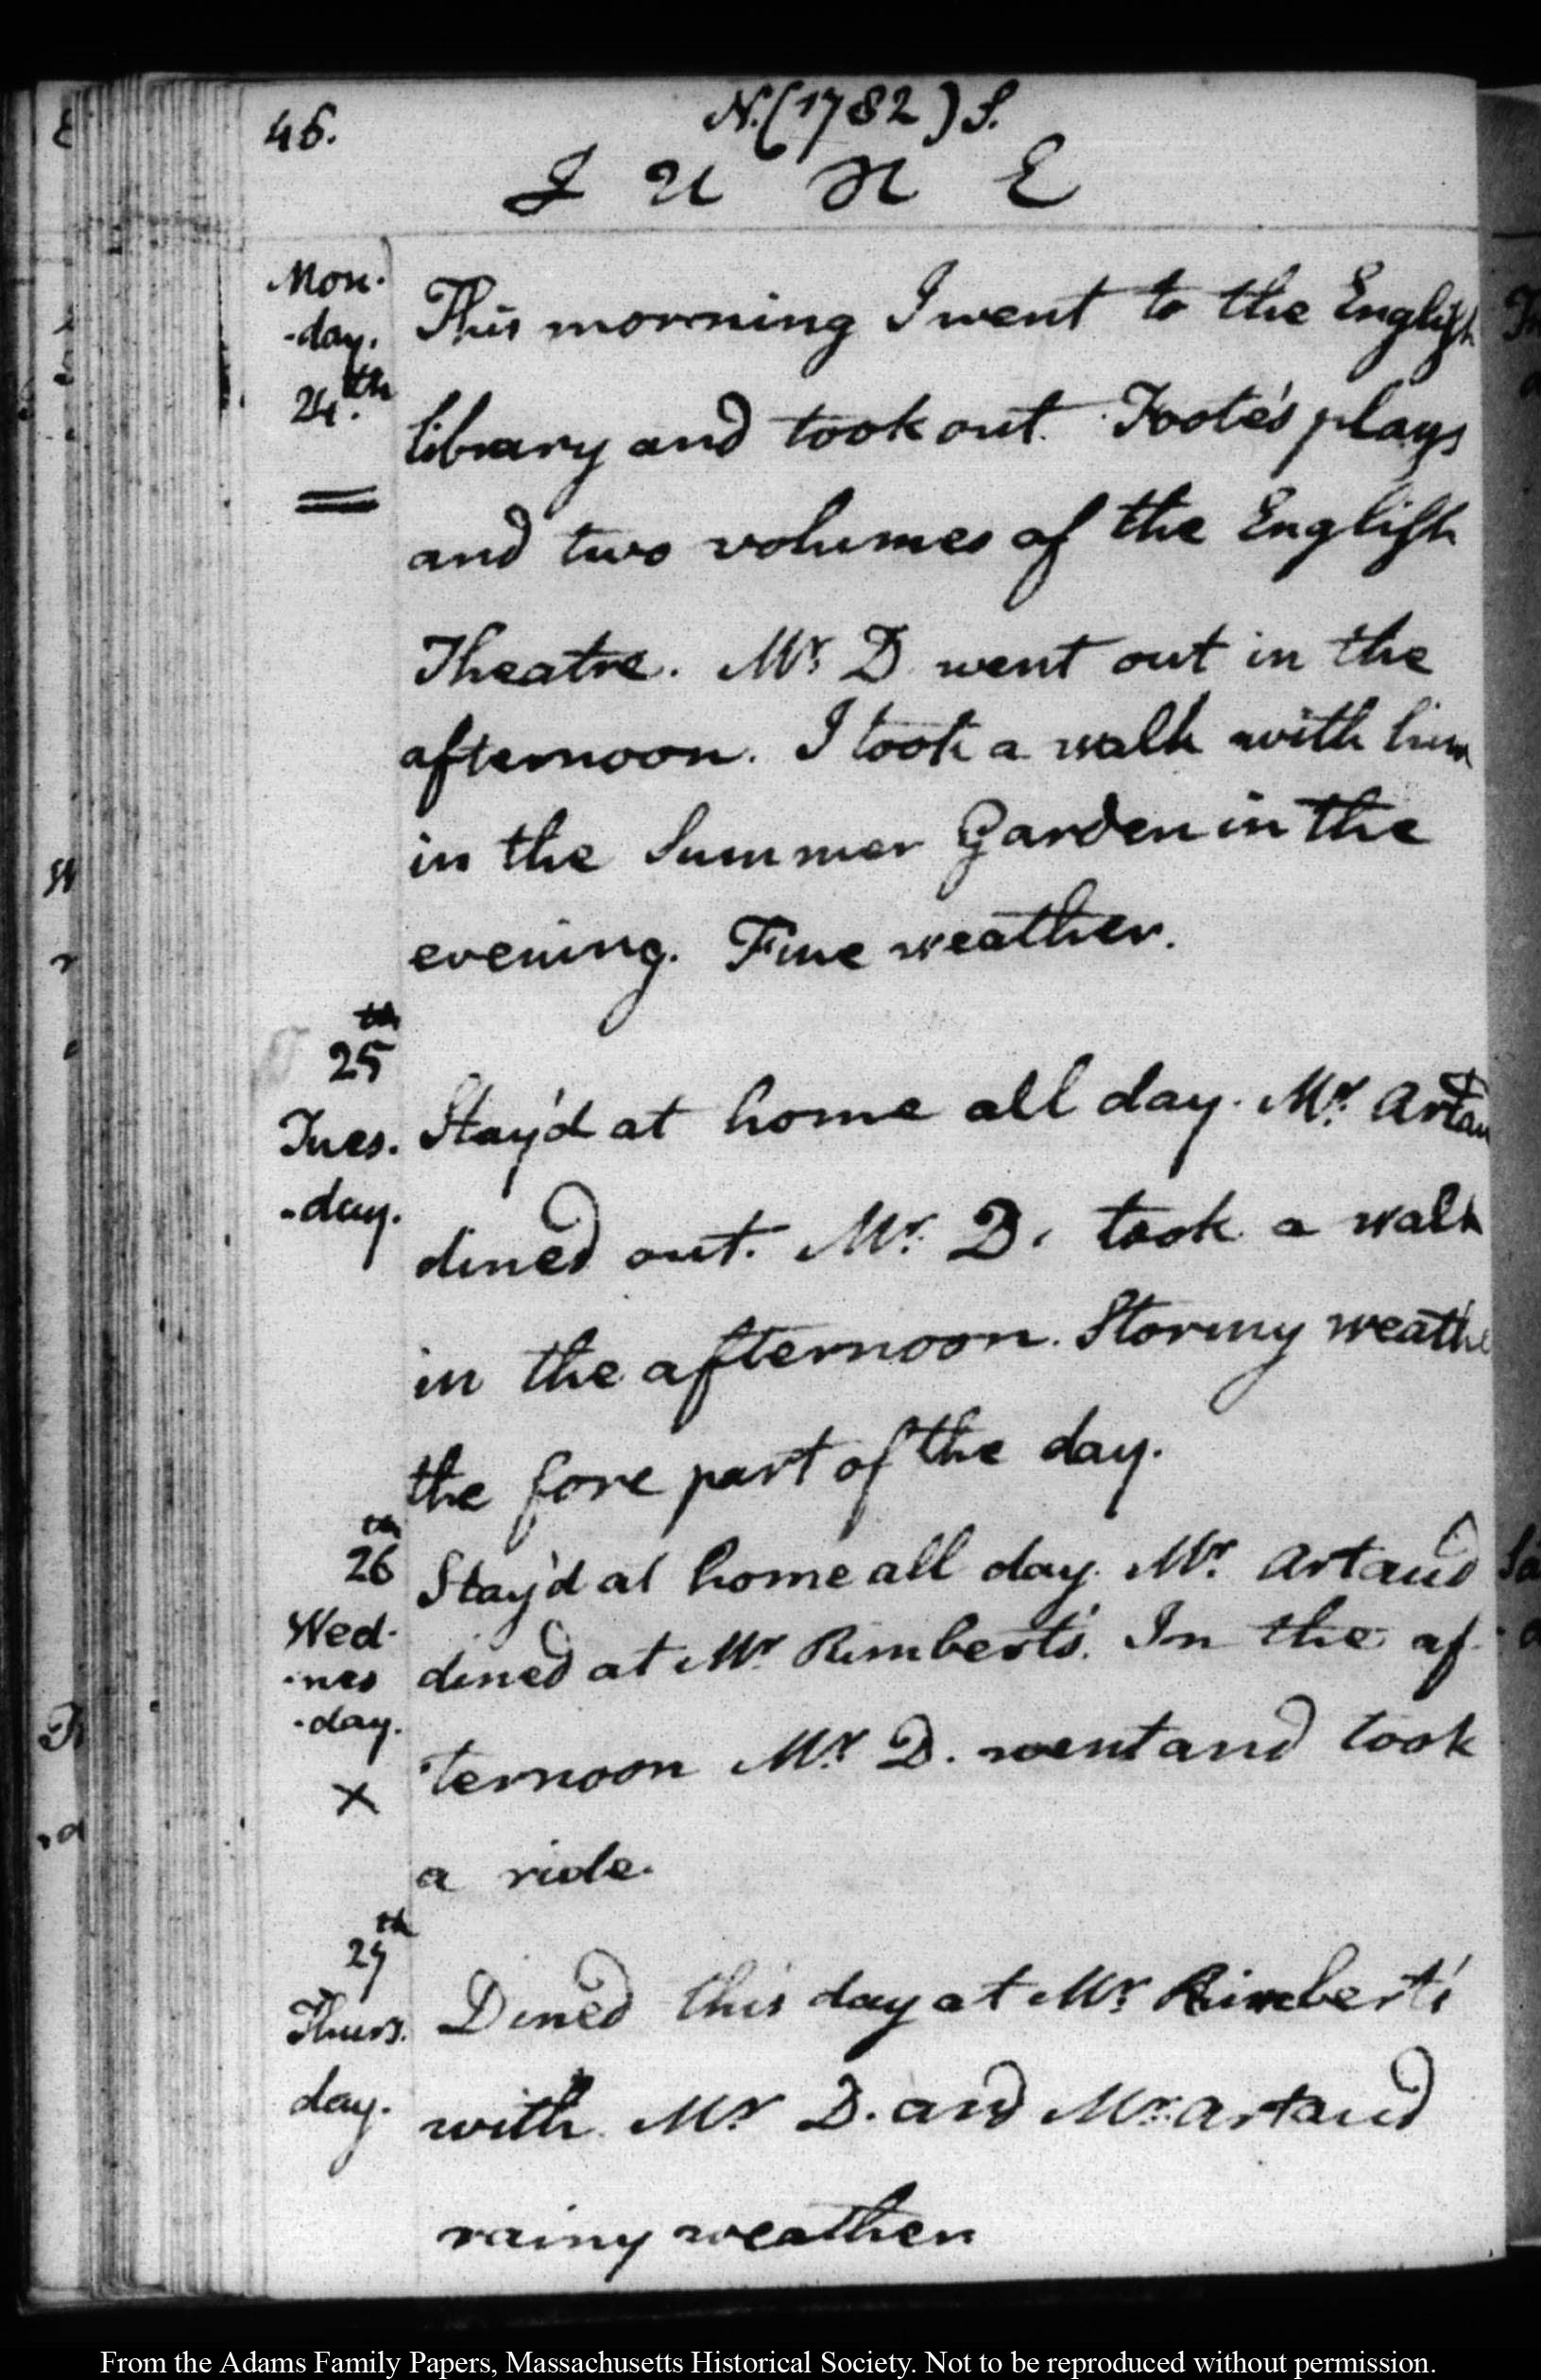 46.
N.(1782)S.
JUNE
Mon.
-day.
24.th
This morning I went to the English
library and took out Foote's plays
and two volumes of the English
Theatre. Mr. D went out in the
afternoon. I took a walk with him
in the Summer Garden in the
evening. Fine weather.
25th
Tues.
-day.
Stay'd at home all day. Mr. Artau
dined out. Mr. D. took a walk
in the afternoon. Stormy weathe
the fore part of the day.
26th
Wed-
-nes
-day.
x
Stay'd at home all day. Mr. Artaud
dined at Mr Rimbert's. In the af-
-ternoon Mr. D. went and took
a ride.
27th
Thurs.
day.
Dined this day at Mr. Rimbert's
with Mr. D. and Mr. Artaud
rainy weather
From the Adams Family Papers, Massachusetts Historical Society. Not to be reproduced without permission.